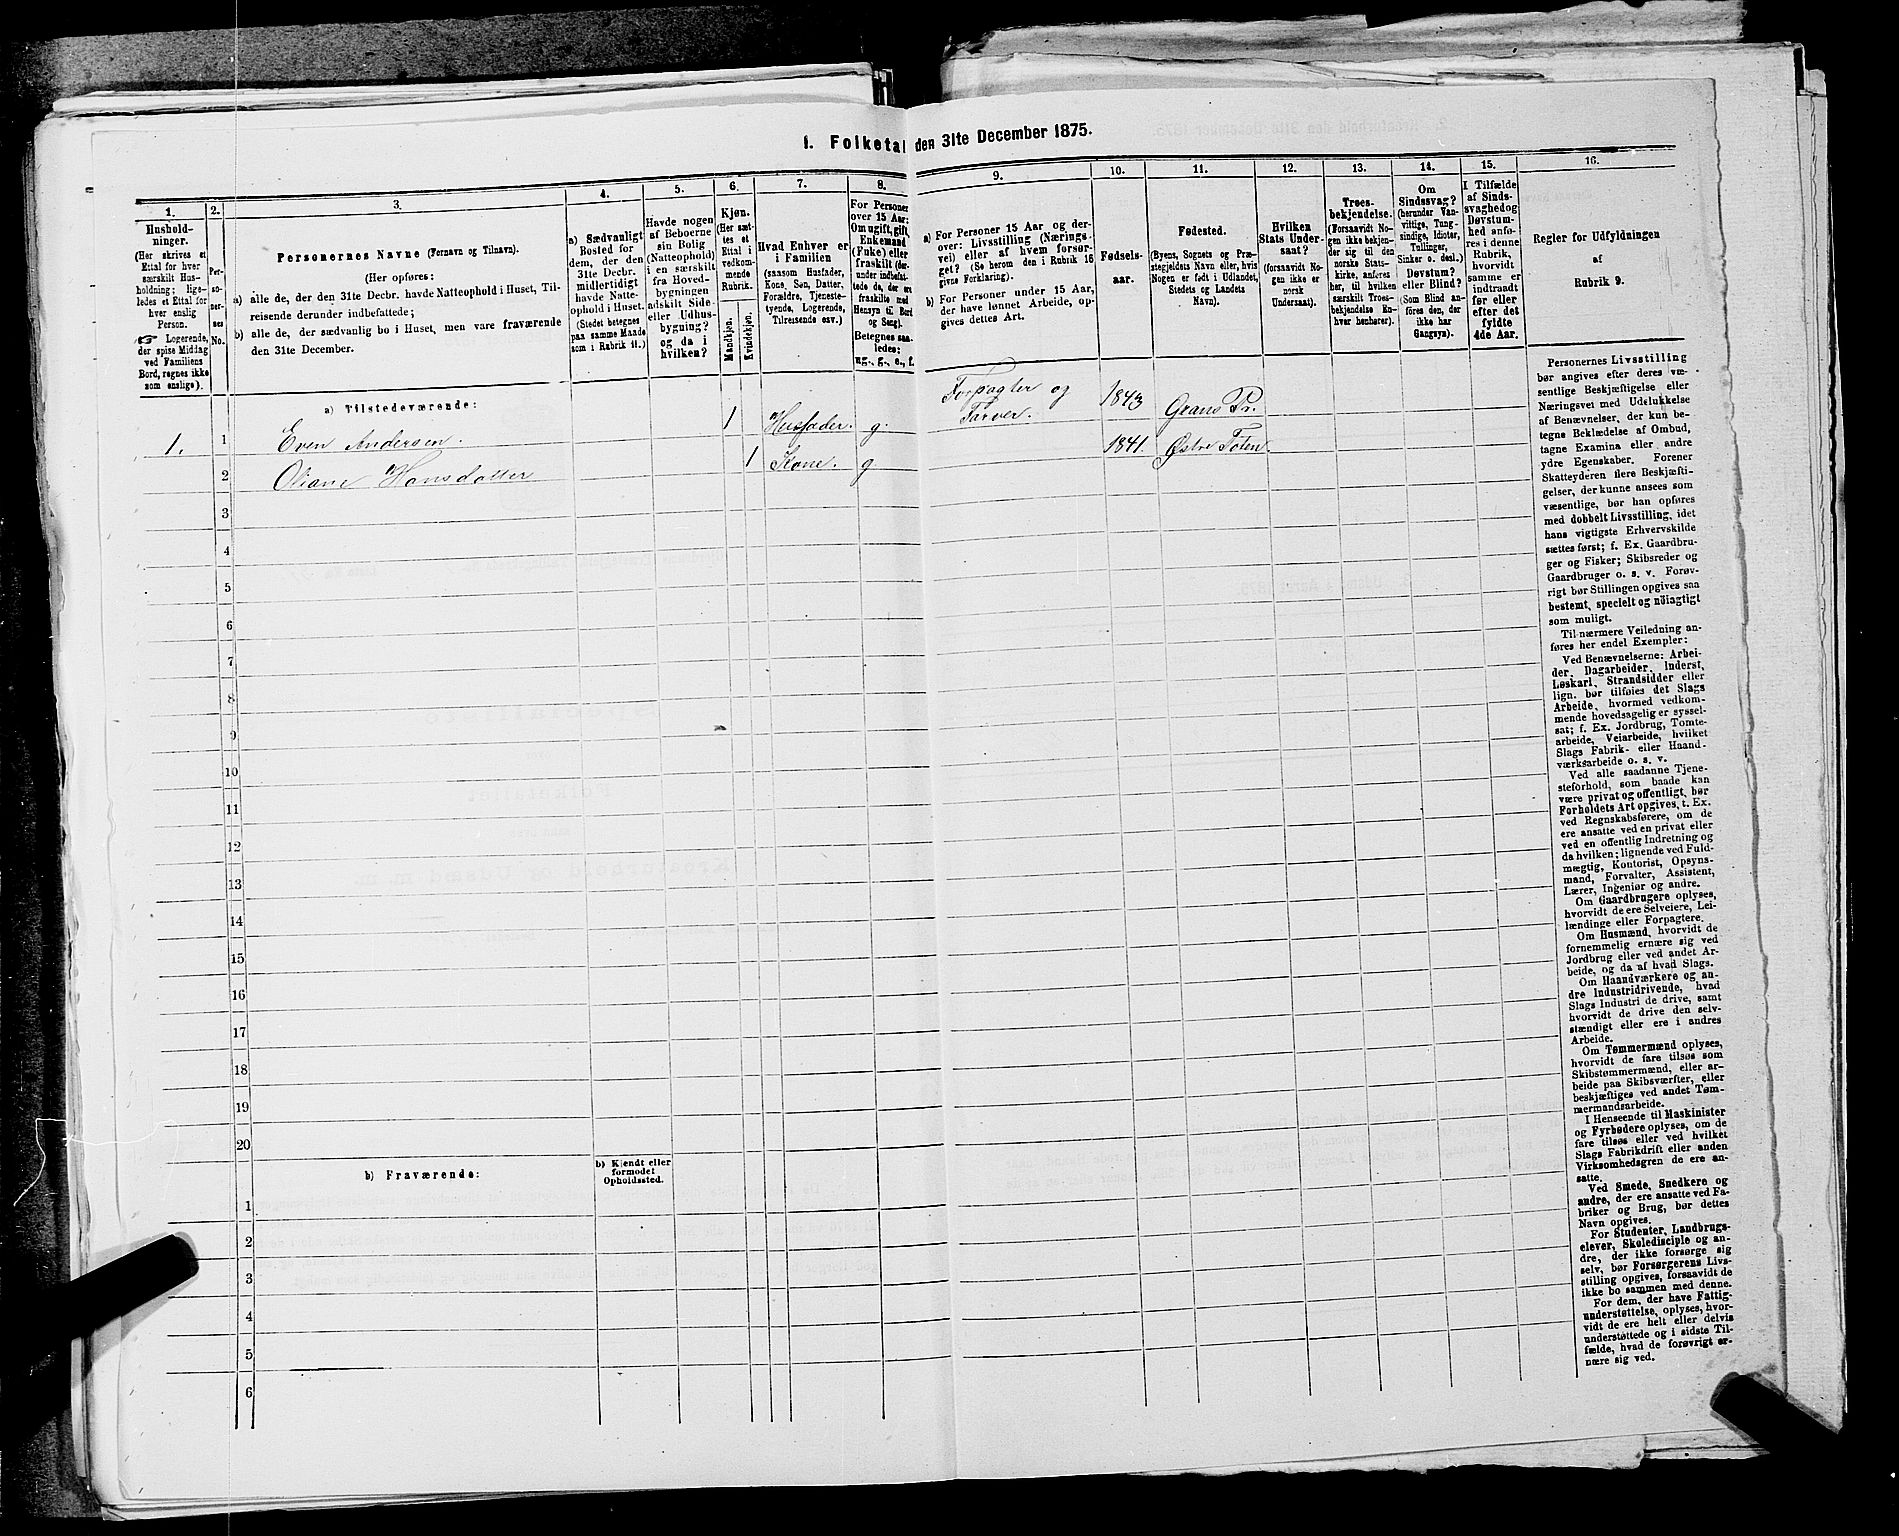 1. Folketal den 31te December 1875.
1.
Hushold-
ninger.
(Her skrives et
Ettal for hver
særskilt Hus-
holdning; lige-
ledes et Ettal for
hver enslig
Person.
☞ Logerende,
der spise Middag
ved Familiens
Bord, regnes ikke
som enslige).
2.
Per-
so-
ner-
nes
No.
3.
Personernes Navne (Fornavn og Tilnavn).
(Her opføres:
a) alle de, der den 31te Decbr. havde Natteophold i Huset, Til-
reisende derunder indbefattede;
b) alle de, der sædvanlig bo i Huset, men vare fraværende
den 31te December.
4.
a) Sædvanligt
Bosted for
dem, der den
31te Decbr.
midlertidigt
havde Natte-
ophold i Huset.
(Stedet betegnes
paa samme Maade
som i Rubrik 11.)
5.
Havde nogen
af Beboerne
sin Bolig
(Natteophold)
i en særskilt
fra Hoved-
bygningen
adskilt Side-
eller Udhus-
bygning?
og da i
hvilken?
6.
Kjøn.
(Her sæt-
tes et
Ettal i
vedkom-
mende
Rubrik.
Mandkjøn.
Kvindekjøn.
7.
Hvad Enhver er
i Familien
(saasom Husfader,
Kone, Søn, Datter,
Forældre, Tjeneste-
tyende, Logerende,
Tilreisende osv.)
8.
For Personer
over 15 Aar:
Om ugift, gift,
Enkemand
(Enke) eller
fraskilt (der-
under indbefat-
tede de, der ere
fraskilte med
Hensyn til Bord
og Seng).
Betegnes saa-
ledes:
ug., g., e., f.
9.
a) For Personer 15 Aar og der-
over: Livsstilling (Nærings-
vei) eller af hvem forsør-
get? (Se herom den i Rubrik 16
givne Forklaring).
b) For Personer under 15 Aar,
der have lønnet Arbeide, op-
gives dettes Art.
10.
Fødsels-
aar.
11.
Fødested.
(Byens, Sognets og Præ-
stegjeldets Navn eller, hvis
Nogen er født i Udlandet,
Stedets og Landets
Navn).
12.
Hvilken
Stats Under-
saat?
(forsaavidt No-
gen ikke er
norsk
Undersaat).
13.
Troes-
bekjendelse.
(Forsaavidt No-
gen ikke bekjen-
der sig til den
norske Stats-
kirke, anføres
her, til hvilken
særskilt Troes-
bekjendelse En-
hver henhører).
14.
Om
Sindssvag?
(herunder Van-
vittige, Tung-
sindige, Idioter,
Tullinger,
Sinker o. desl.)
Døvstum?
eller Blind?
(Som Blind an-
føres den, der
ikke har
Gangsyn).
15.
I Tilfælde
af Sinds-
svaghed og
Døvstum-
hed anfø-
res i denne
Rubrik,
hvorvidt
samme er
indtraadt
før eller
efter det
fyldte
4de Aar.
16.
Regler for Udfyldningen
af
Rubrik 9.
a) Tilstedeværende:
1. 1 Even Andersen. 1 Husfader. g. Forpagter og Farver. 1843 Grans Pr.
2 Oliane Hansdatter 1 Kone. g 1841. Østre Toten.
3
4
5
6
7
8
9
10
11
12
13
14
15
16
17
18
19
20
b) Fraværende:
b) Kjendt eller
formodet
Opholdssted.
1
2
3
4
5
6
Personernes Livsstilling
bør angives efter deres væ-
sentlige Beskjæftigelse eller
Næringsvei med Udelukkelse
af Benævnelser, der kun be-
tegne Beklædelse af Ombud,
tagne Examina eller andre
ydre Egenskaber. Forener
Skatteyderen flere Beskjæfti-
gelser, der kunne ansees som
væsentlige, bør han opføres
med dobbelt Livsstilling, idet
hans vigtigste Erhvervskilde
sættes først; f. Ex. Gaardbru-
ger og Fisker; Skibsreder og
Gaardbruger o. s. v. Forøv-
rigt bør Stillingen opgives saa
bestemt, specielt og nöiagtigt
som muligt.
Til nærmere Veiledning an-
føres her endel Exempler:
Ved Benævnelserne: Arbei-
der, Dagarbeider, Inderst,
Løskarl, Strandsidder eller
lign. bør tilføies det Slags
Arbeide, hvormed vedkom-
mende hovedsagelig er syssel-
sat; f. Ex. Jordbrug, Tomte-
arbeide, Veiarbeide, hvilket
Slags Fabrik- eller Haand-
værksarbeide o. s. v.
Ved alle saadanne Tjene-
steforhold, som baade kan
være privat og offentligt, bør
Forholdets Art opgives, t. Ex.
ved Regnskabsførere, om de
ere ansatte ved en privat eller
ved en offentlig Indretning og
da hvilken; lignende ved Fuld-
mægtig, Kontorist, Opsyns-
mand, Forvalter, Assistent,
Lærer, Ingeniør og andre.
Om Gaardbrugere oplyses,
hvorvidt de ere Selveiere, Lei-
lændinge eller Forpagtere.
Om Husmænd, hvorvidt de
fornemmelig ernære sig ved
Jordbrug eller ved andet Ar-
beide, og da af hvad Slags.
Om Haandværkere og an-
dre Industridrivende, hvad
Slags Industri de drive, samt
hvorvidt de drive den selv-
stændigt eller ere i andres
Arbeide.
Om Tømmermænd oplyses,
hvorvidt de fare tilsøs som
Skibstømmermænd, eller ar-
beide paa Skibsværfter, eller
beskjæftiges ved andet Tøm-
mermandsarbeide.
I Henseende til Maskinister
og Fyrbødere oplyses, om de
fare tilsøs eller ved hvilket
Slags Fabrikdrift eller anden
Virksomhedsgren de ere an-
satte.
Ved Smede, Snedkere og
andre, der ere ansatte ved Fa-
briker og Brug, bør dettes
Navn opgives.
For Studenter, Landbrugs-
elever, Skoledisciple og an-
dre, der ikke forsørge sig
selv, bør Forsørgerens Livs-
stilling opgives, forsaavidt de
ikke bo sammen med denne.
For dem, der have Fattig-
understøttelse, oplyses, hvor-
vidt de ere helt eller delvis
understøttede og i sidste Til-
fælde, hvad de forøvrigt er-
nære sig ved.